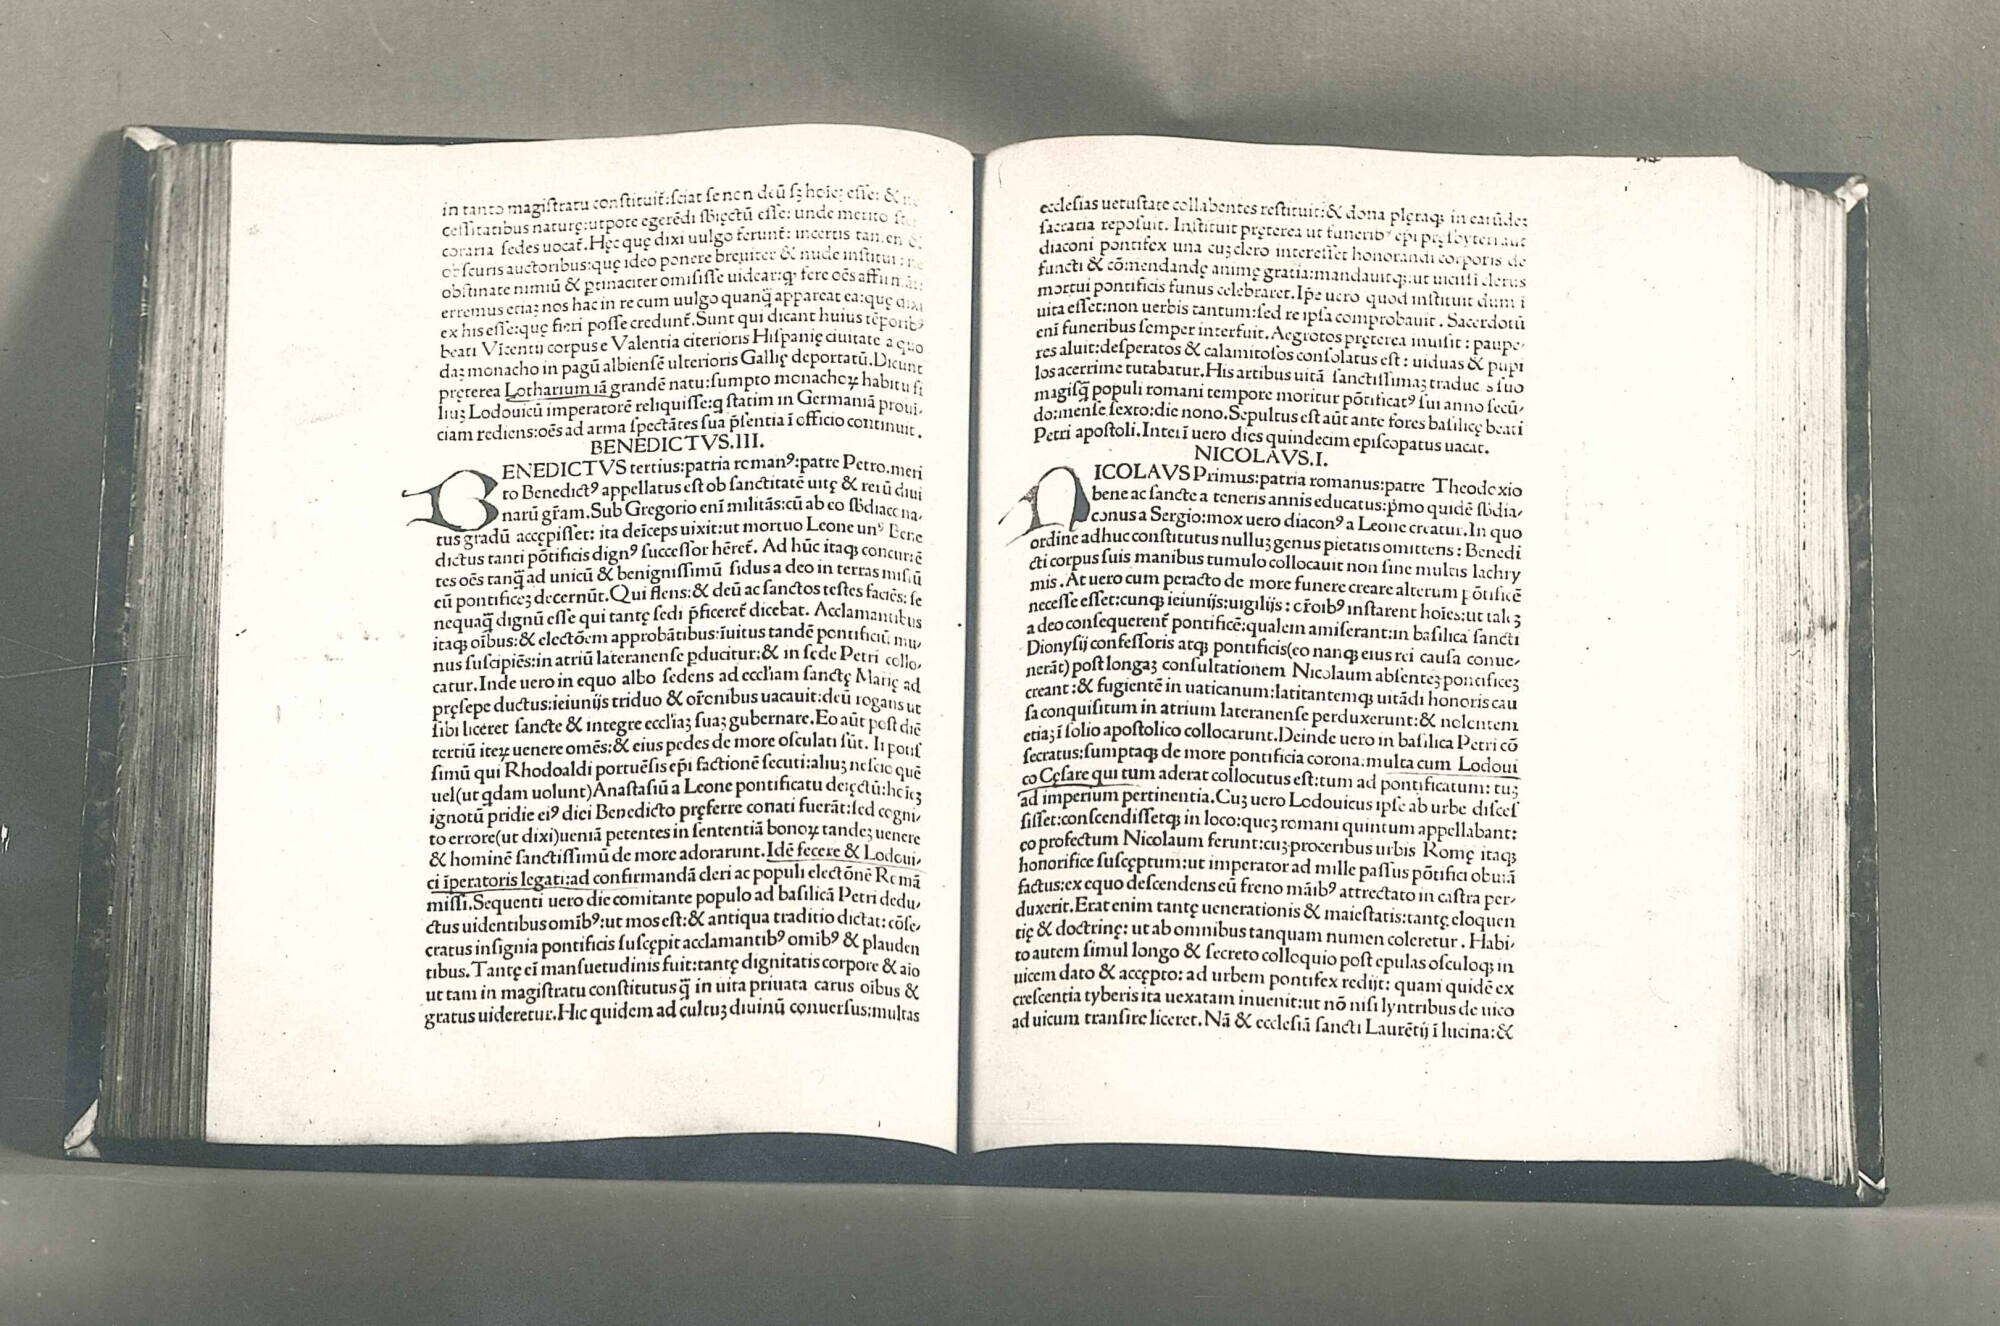 in tanto magiſtratu conſtituit̄:ſciat ſe non deū ſꝫ hoīeꝫ eſſe: &
ceſſitatibus naturę:utpote egerēdi ſb̄iectū eſſe: unde merito
coraria ſedes uocat̄. Hęc quę dixi uulgo ferunt̄: incertis tamen &
obſcuris auctoribus:quę ideo ponere breuiter & nude inſtitui: ne
obſtinate nimiū & ꝑtinaciter omiſiſſe uidear:ꝙ fere oēs affirmāt:
erremus etiaꝫ nos hac in re cum uulgo quanꝗ̄ appareat ea:quę dixi
ex his eſſe:quę fieri poſſe credunt̄. Sunt qui dicant huius tēporibꝰ
beati Vicentij corpus e Valentia citerioris Hiſpanię ciuitate a quo
daꝫ monacho in pagū albienſē ulterioris Gallię deportatū. Dicunt
pręterea Lotharium iā grandē natu:ſumpto monachoꝝ habitu fi
liuꝫ Lodouicū imperatorē reliquiſſe:ꝗ ſtatim in Germaniā proui,
ciam rediens:oēs ad arma ſpectātes ſua p̄ſentia ī officio continuit.
BENEDICTVS.III.
BENEDICTVS tertius:patria romanꝰ:patre Petro.meri
to Benedictꝰ appellatus eſt ob ſanctitatē uitę & rerū diui
narū gr̄am. Sub Gregorio enī militās:cū ab eo ſb̄diaco na,
tus gradū accępiſſet: ita deīceps uixit:ut mortuo Leone unꝰ Bene
dictus tanti pōtificis dignꝰ ſucceſſor hēret̄. Ad hūc itaqꝫ concurrē
tes oēs tanꝗ̄ ad unicū & benigniſſimū ſidus a deo in terras miſſū
eū pontificeꝫ decernūt. Qui flens:& deū ac ſanctos teſtes faciēs: ſe
nequaꝗ̄ dignū eſſe qui tantę ſedi p̄ficeret̄ dicebat. Acclamantibus
itaqꝫ oībus:& electōem approbātibus:īuitus tandē pontificiū mu,
nus ſuſcipiēs:in atriū lateranenſe ꝑducitur:& in ſede Petri collo,
catur. Inde uero in equo albo ſedens ad eccl'iam ſanctę Marię ad
pręſepe ductus:ieiunijs triduo & or̄onibus uacauit:deū rogans ut
ſibi liceret ſancte & integre eccl'iaꝫ ſuaꝫ gubernare. Eo aūt poſt diē
tertiū iteꝝ uenere omēs:& eius pedes de more oſculati ſūt. Ii potiſ
ſimū qui Rhodoaldi portuēſis ep̄i factionē ſecuti:aliuꝫ neſcio quē
uel(ut ꝗdam uolunt)Anaſtaſiū a Leone pontificatu deiectū:hoīeꝫ
ignotū pridie eiꝰ diei Benedicto pręferre conati fuerāt:ſed cogni,
to errore(ut dixi)ueniā petentes in ſententiā bonoꝝ tandeꝫ uenere
& hominē ſanctiſſimū de more adorarunt. Idē fecere & Lodoui,
ci īperatoris legati:ad confirmandā cleri ac populi electōnē Romā
miſſi. Sequenti uero die comitante populo ad baſilicā Petri dedu,
ctus uidentibus omībꝰ:ut mos eſt:& antiqua traditio dictat: cōſe,
cratus inſignia pontificis ſuſcępit acclamantibꝰ omībꝰ & plauden
tibus. Tantę eī manſuetudinis fuit:tantę dignitatis corpore & aīo
ut tam in magiſtratu conſtitutus ꝗ̄ in uita priuata carus oībus &
gratus uideretur. Hic quidem ad cultuꝫ diuinū conuerſus:multas
eccleſias uetuſtate collabentes reſtituit:& dona pleraqꝫ in earūdeꝫ
ſacraria repoſuit. Inſtituit pręterea ut funeribꝰ epī preſbyteri aut
diaconi pontifex una cuꝫ clero intereſſet honorandi corporis de
functi & cōmendandę animę gratia:mandauitqꝫ:ut uiciſſi clerus
mortui pontificis funus celebraret. Ip̄e uero quod inſtituit dum ī
uita eſſet:non uerbis tantum:ſed re ipſa comprobauit. Sacerdotū
enī funeribus ſemper interfuit. Aegrotos pręterea inuiſit: paupe,
res aluit:deſperatos & calamitoſos conſolatus eſt: uiduas & pupi
los acerrime tutabatur. His artibus uitā ſanctiſſimaꝫ traducēs ſuo
magiſꝗ̄ populi romani tempore moritur pōtificatꝰ ſui anno ſecū,
do:menſe ſexto:die nono. Sepultus eſt aūt ante fores baſilicę beati
Petri apoſtoli. Interī uero dies quindecim epiſcopatus uacat.
NICOLAVS.I.
NICOLAVS Primus:patria romanus:patre Theodoxio
bene ac ſancte a teneris annis educatus:p̄mo quidē ſb̄dia,
conus a Sergio:mox uero diaconꝰ a Leone creatur. In quo
ordine adhuc conſtitutus nulluꝫ genus pietatis omittens: Benedi
cti corpus ſuis manibus tumulo collocauit non ſine multis lachry
mis. At uero cum peracto de more funere creare alterum pōtificē
neceſſe eſſet:cunqꝫ ieiunijs:uigilijs: or̄oībꝰ inſtarent hoīes:ut taleꝫ
a deo conſequerent̄ pontificē:qualem amiſerant:in baſilica ſancti
Dionyſij confeſſoris atqꝫ pontificis(eo nanqꝫ eius rei cauſa conue,
nerāt) poſt longaꝫ conſultationem Nicolaum abſenteꝫ pontificeꝫ
creant:& fugientē in uaticanum:latitantemqꝫ uitādi honoris cau
ſa conquiſitum in atrium lateranenſe perduxerunt:& nolentem
etiaꝫ ī ſolio apoſtolico collocarunt. Deinde uero in baſilica Petri cō
ſecratus:ſumptaqꝫ de more pontificia corona:multa cum Lodoui
co Cęſare qui tum aderat collocutus eſt:tum ad pontificatum: tuꝫ
ad imperium pertinentia. Cuꝫ uero Lodouicus ipſe ab urbe diſceſ
ſiſſet:conſcendiſſetqꝫ in loco:queꝫ romani quintum appellabant:
eo profectum Nicolaum ferunt:cuꝫ proceribus urbis Romę itaqꝫ
honorifice ſuſcęptum:ut imperator ad mille paſſus pōtifici obuiā
factus:ex equo deſcendens eū freno māibꝰ attrectato in caſtra per,
duxerit. Erat enim tantę uenerationis & maieſtatis:tantę eloquen
tię & doctrinę: ut ab omnibus tanquam numen coleretur. Habi,
to autem ſimul longo & ſecreto colloquio poſt epulas oſculoqꝫ in
uicem dato & accępto: ad urbem pontifex redijt: quam quidē ex
creſcentia tyberis ita uexatam inuenit:ut nō niſi lyntribus de uico
ad uicum tranſire liceret. Nā & eccleſiā ſancti Laurētij ī lucina:&